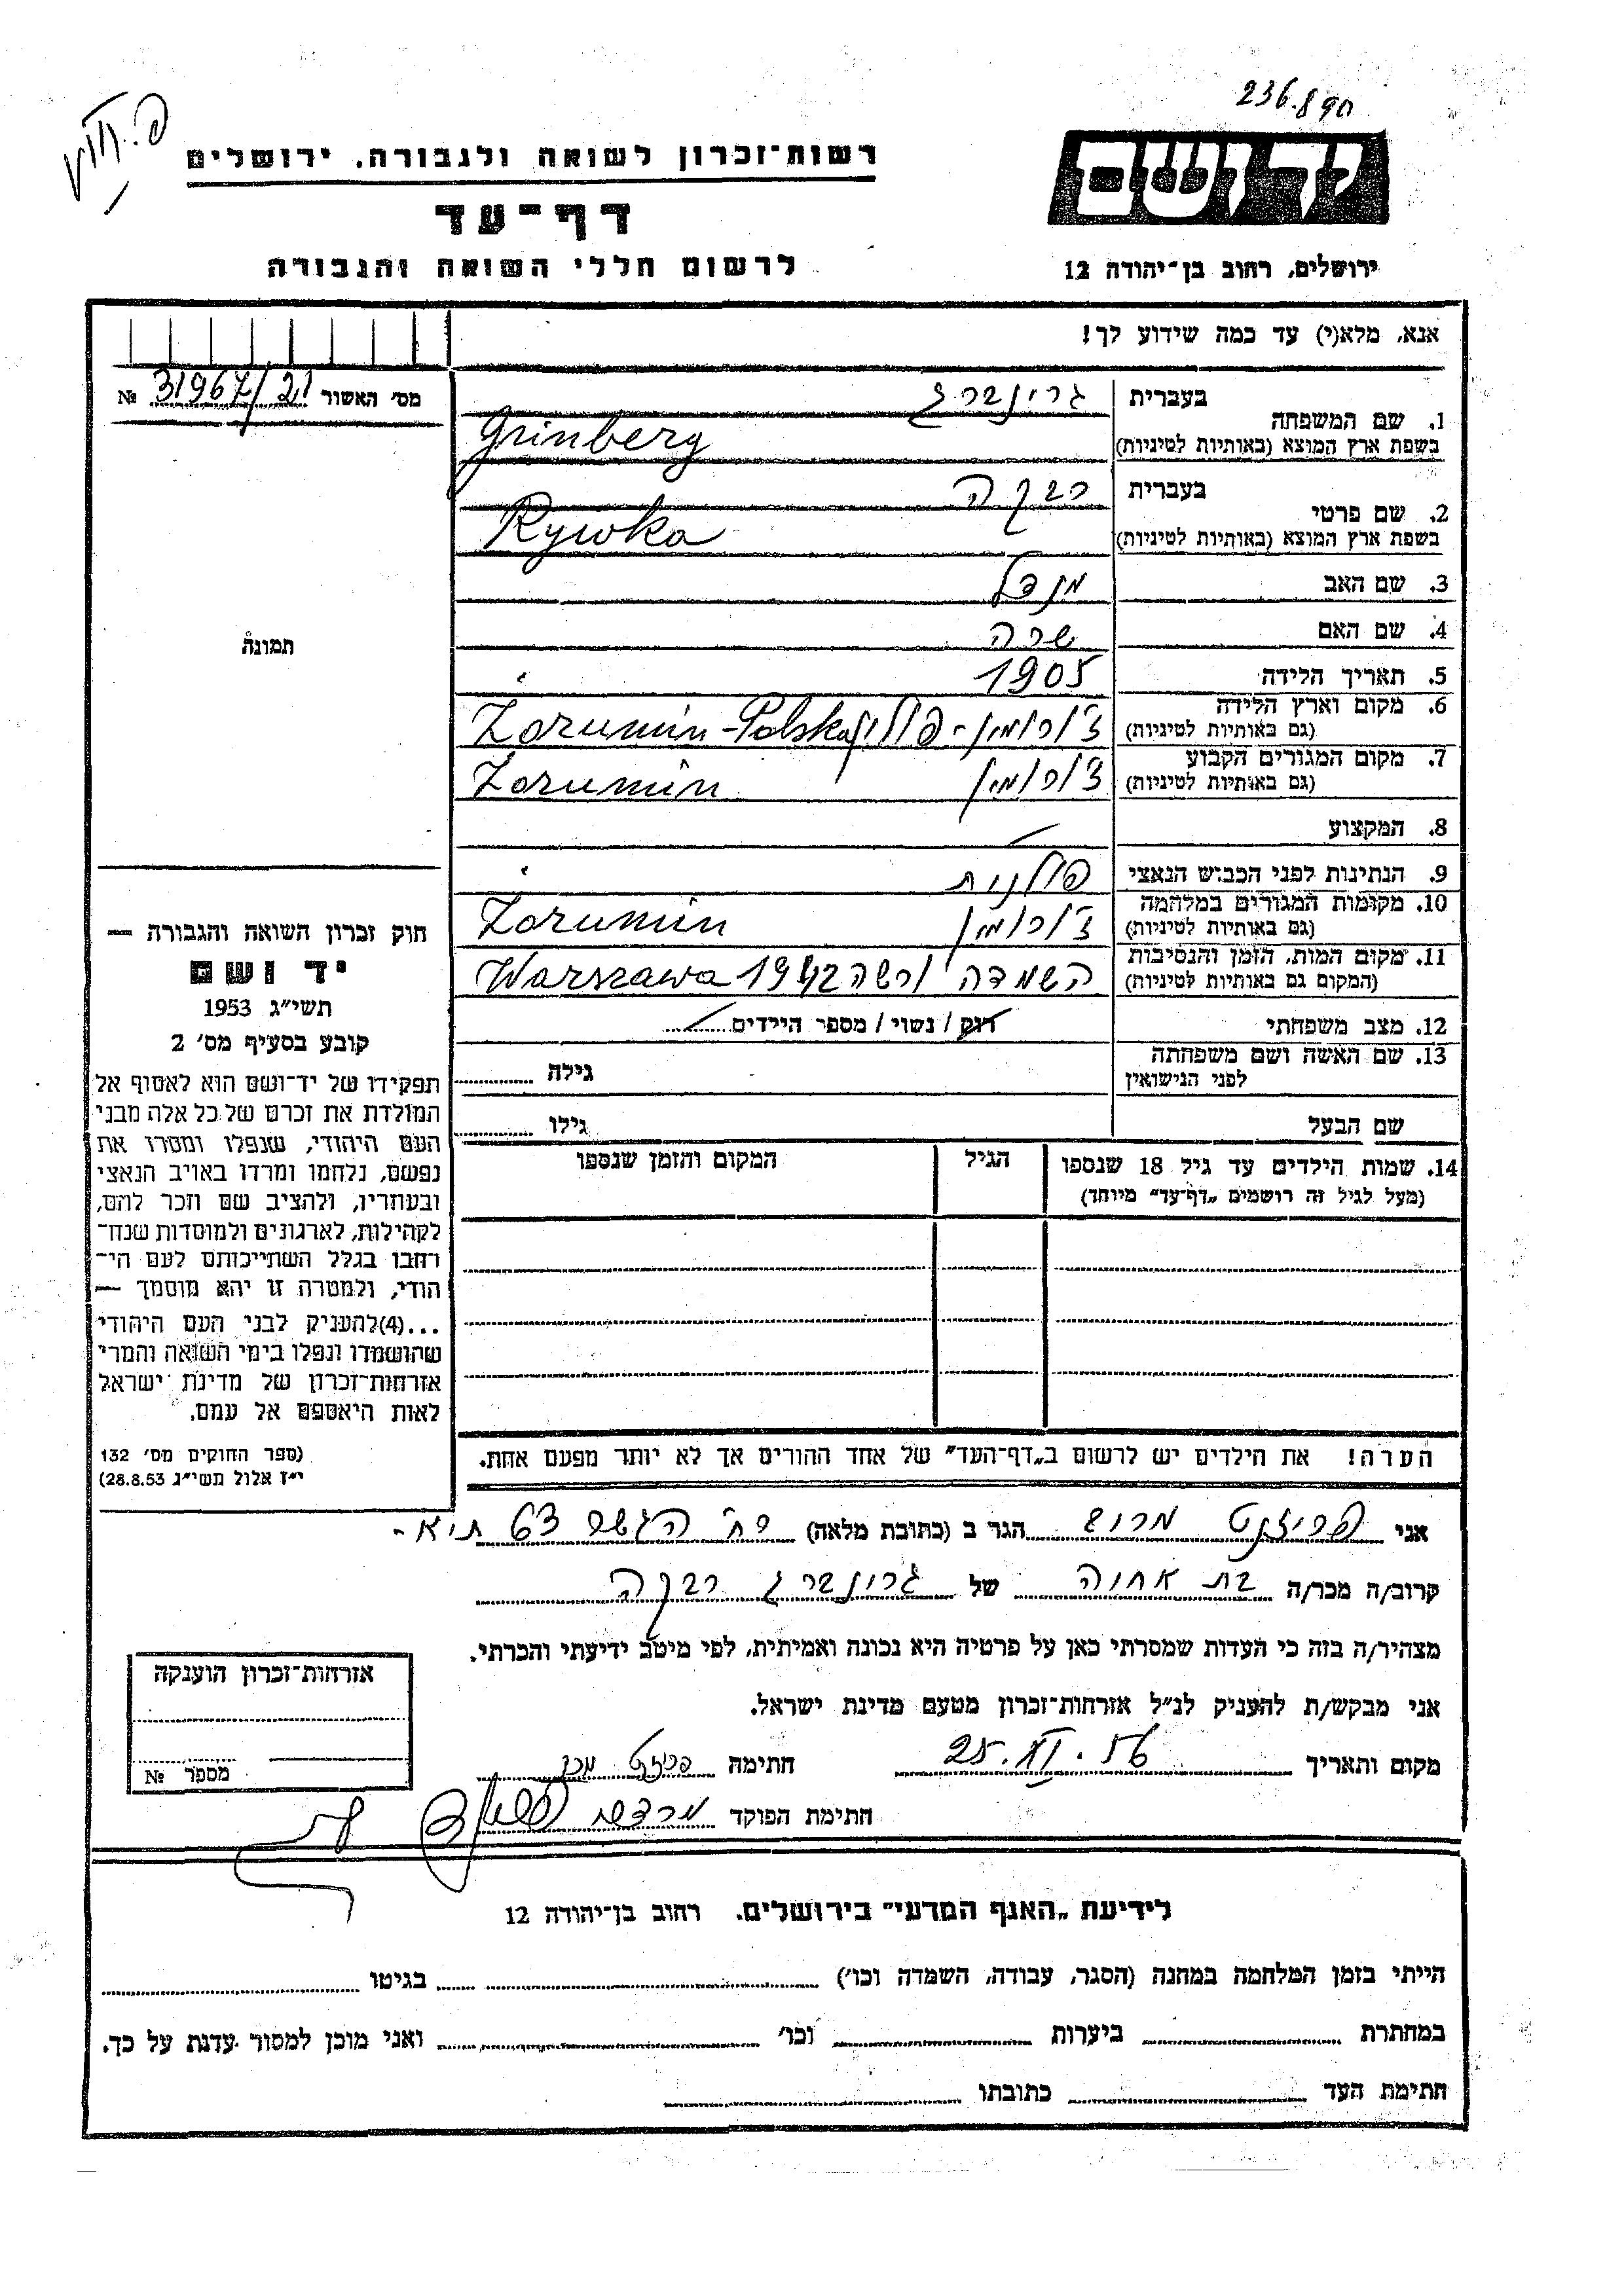 236.890
רשות־זכרון לשואה ולגבורה, ירושלים
יד ושם
דף־עד
לרשום חללי השואה והגבורה
ירושלים, רחוב בן־יהודה 12
אנא, מלא(י) עד כמה שידוע לך!
מס' האשור 31967/21 №
1. שם המשפחה
בעברית גרינברג
בשפת ארץ המוצא (באותיות לטיניות) Grinberg
2. שם פרטי
בעברית רבקה
בשפת ארץ המוצא (באותיות לטיניות) Rywka
3. שם האב מנדל
4. שם האם שרה
5. תאריך הלידה 1905
6. מקום וארץ הלידה
(גם באותיות לטיניות) ז'ורומין - פולין Zorumin - Polska
7. מקום המגורים הקבוע
(גם באותיות לטיניות) ז'ורומין Zorumin
8. המקצוע
9. הנתינות לפני הכבוש הנאצי פולנית
10. מקומות המגורים במלחמה
(גם באותיות לטיניות) ז'ורומין Zorumin
11. מקום המות, הזמן והנסיבות
(המקום גם באותיות לטיניות) השמדה ורשה 1942 Warszawa
12. מצב משפחתי רווק / נשוי / מספר הילדים
13. שם האשה ושם משפחתה
לפני הנישואין
גילה
שם הבעל גילו
14. שמות הילדים עד גיל 18 שנספו הגיל המקום והזמן שנספו
(מעל לגיל זה רושמים „דף־עד" מיוחד)
תמונה
חוק זכרון השואה והגבורה —
יד ושם
תשי״ג 1953
קובע בסעיף מס' 2
תפקידו של יד־ושם הוא לאסוף אל
המולדת את זכרם של כל אלה מבני
העם היהודי, שנפלו ומסרו את
נפשם, נלחמו ומרדו באויב הנאצי
ובעוזריו, ולהציב שם וזכר להם,
לקהילות, לארגונים ולמוסדות שנח־
רבו בגלל השתייכותם לעם הי־
הודי, ולמטרה זו יהא מוסמך —
...(4)להעניק לבני העם היהודי
שהושמדו ונפלו בימי השואה והמרי
אזרחות־זכרון של מדינת ישראל
לאות היאספם אל עמם.
(ספר החוקים מס' 132
י״ז אלול תשי״ג 28.8.53)
הערה! את הילדים יש לרשום ב„דף־העד" של אחד ההורים אך לא יותר מפעם אחת.
אני הגר ב (כתובת מלאה) רח' הגשר 63 ת״א-
קרוב/ה מכר/ה בת אחוה של גרינברג רבקה
מצהיר/ה בזה כי העדות שמסרתי כאן על פרטיה היא נכונה ואמיתית, לפי מיטב ידיעתי והכרתי.
אני מבקש/ת להעניק לנ״ל אזרחות־זכרון מטעם מדינת ישראל.
מקום ותאריך 25.XI.56 חתימה
חתימת הפוקד
אזרחות־זכרון הוענקה
מספר №
לידיעת „האגף המדעי" בירושלים, רחוב בן־יהודה 12
הייתי בזמן המלחמה במחנה (הסגר, עבודה, השמדה וכו') בגיטו
במחתרת ביערות וכו' ואני מוכן למסור עדות על כך.
חתימת העד כתובתו